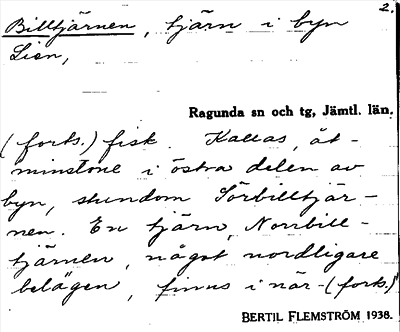 2.
Billtjärnen, tjärn i byn
Lien,
Ragunda sn och tg, Jämtl. län.
(forts.) fisk. Kallas, åt-
minstone i östra delen av
byn, stundom Sörbilltjär-
nen. En tjärn, Norrbill-
tjärnen, något nordligare
belägen, finns i när-(forts.)
BERTIL FLEMSTRÖM 1938.